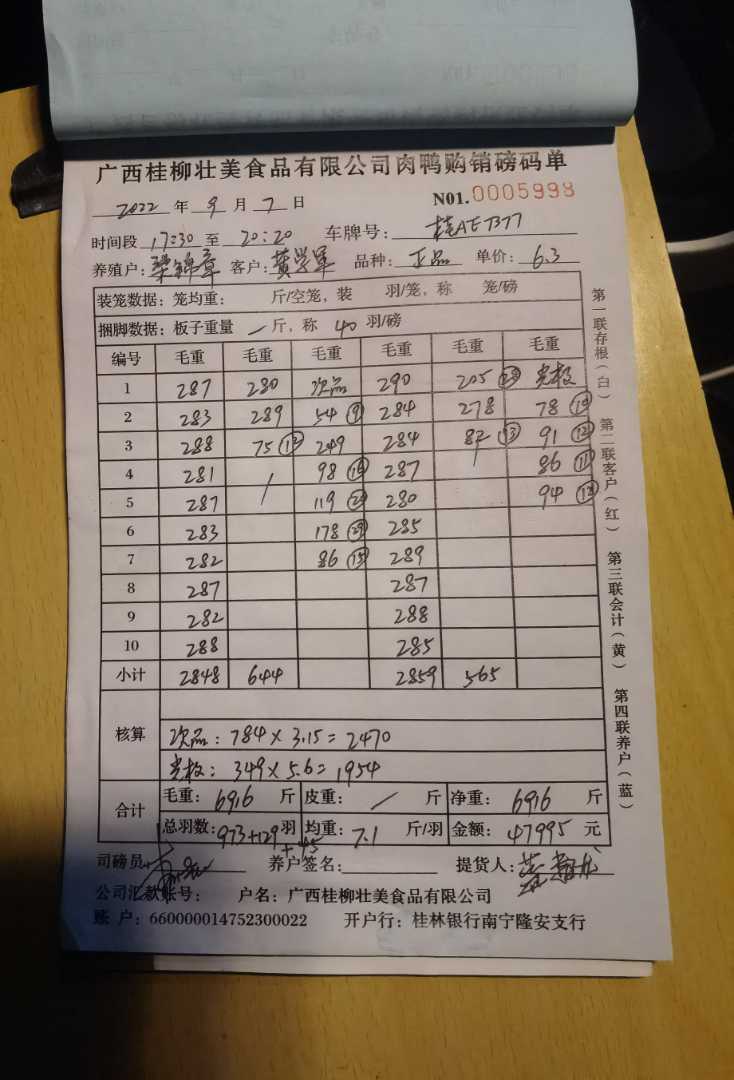 广西桂柳壮美食品有限公司肉鸭购销磅码单
2022 年 9 月 7 日 N01.0005998
时间段 17:30 至 20:20 车牌号: 桂AE7377
养殖户: 梁锦章 客户: 黄学军 品种: 正品 单价: 6.3
装笼数据: 笼均重: 斤/空笼, 装 羽/笼, 称 笼/磅
捆脚数据: 板子重量 / 斤, 称 40 羽/磅
编号 毛重 毛重 毛重 毛重 毛重 毛重
1 287 280 次品 290 205 光板
2 283 289 54 ⑨ 284 278 78 ⑩
3 288 75 249 284 82 ⑬ 91 ⑫
4 281 / 98 287 / 86 ⑪
5 287 119 280 94 ⑫
6 283 178 ㉙ 285
7 282 86 ⑮ 289
8 287 287
9 282 288
10 288 285
小计 2848 644 2859 565
核算
次品: 784 × 3.15 = 2470
光板: 349 × 5.6 = 1954
合计 毛重: 6916 斤 皮重: / 斤 净重: 6916 斤
总羽数: 973+129 羽 均重: 7.1 斤/羽 金额: 47995 元
+45
司磅员: 养户签名: 提货人:
公司汇款账号: 户名: 广西桂柳壮美食品有限公司
账 户: 660000014752300022 开户行: 桂林银行南宁隆安支行
第一联存根(白) 第二联客户(红) 第三联会计(黄) 第四联养户(蓝)